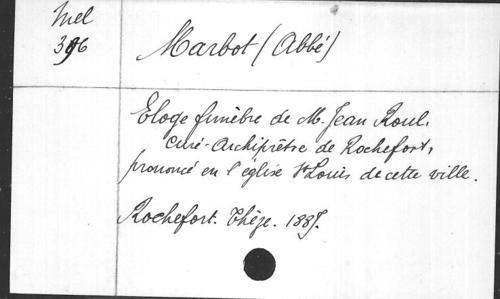 Mel
396
Marbot (Abbé)
Eloge funèbre de M. Jean Roul,
Curé-Archiprêtre de Rochefort,
prononcé en l'église St Louis de cette ville.
Rochefort. Thèze. 1885.